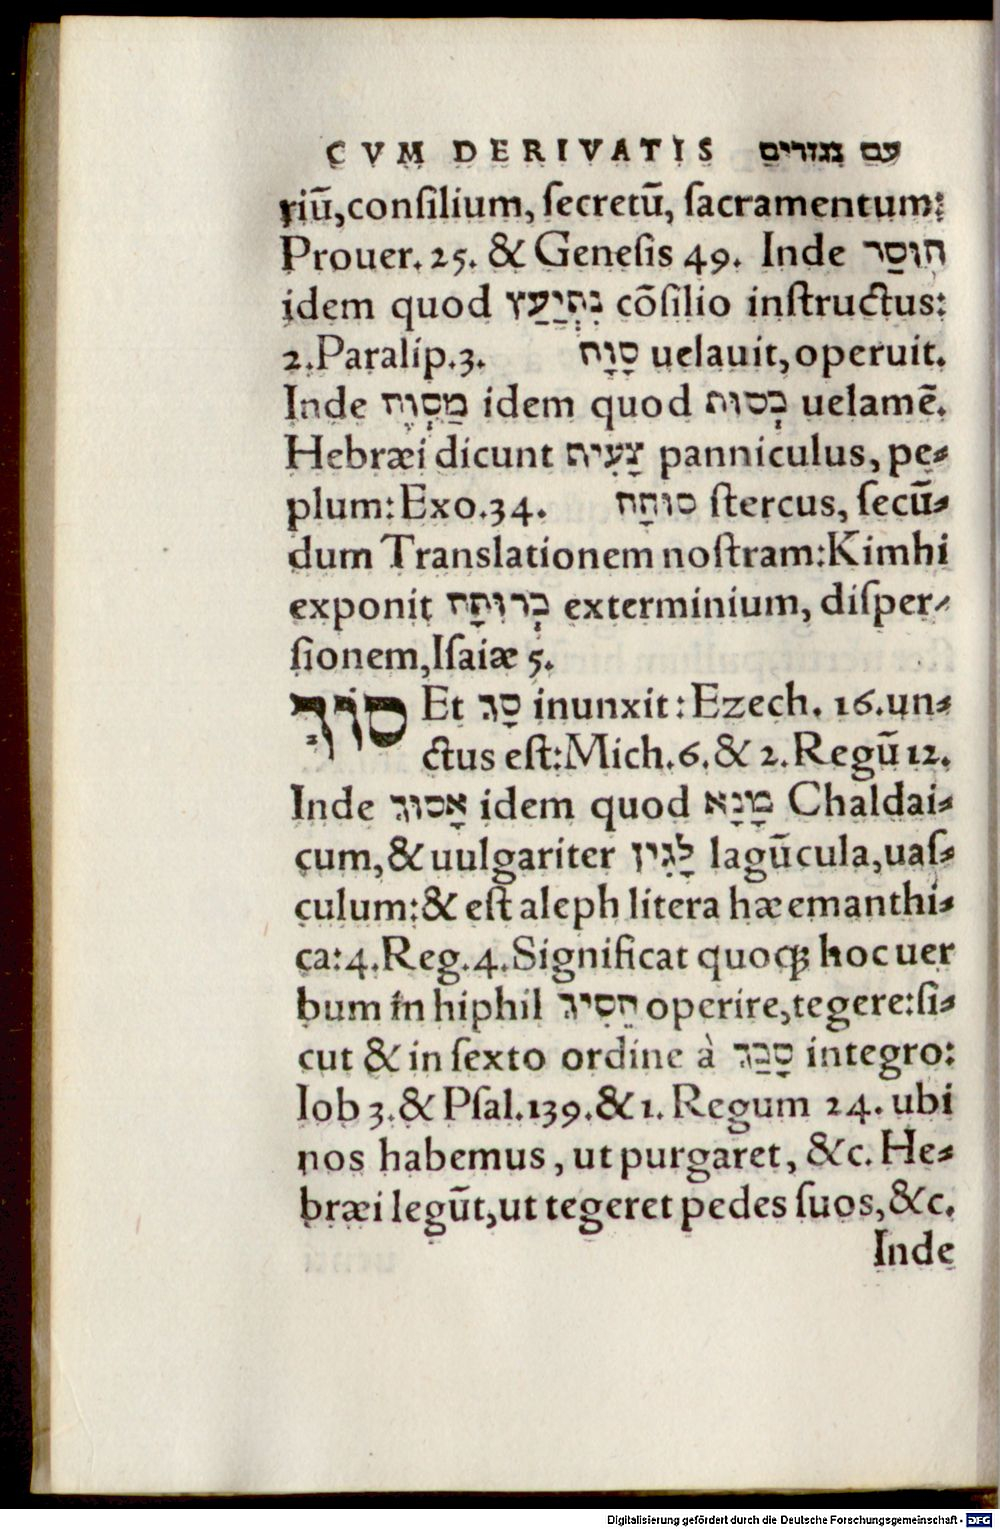 CVM DERIVATIS עם נגזרים
riū,conſilium, ſecretū, ſacramentum:
Prouer. 25. & Geneſis 49. Inde הוּסַד
idem quod נִתְיַעַץ cōſilio inſtructus:
2.Paralip.3. סָוָה uelauit,operuit.
Inde מַסְוֶה idem quod כְּסוּת uelamē.
Hebræi dicunt צָעִיף panniculus, pe⸗
plum:Exo.34. סוּחָה ſtercus, ſecū⸗
dum Translationem noſtram:Kimhi
exponit כְּרוּתָה exterminium, diſper⸗
ſionem,Iſaiæ 5.
סוּךְ Et סָךְ inunxit:Ezech. 16.un⸗
ctus eſt:Mich.6.& 2.Regū 12.
Inde אָסוּךְ idem quod מָנָא Chaldai⸗
cum,& uulgariter לָגִין lagūcula,uaſ⸗
culum:& eſt aleph litera hæemanthi⸗
ca:4.Reg.4.Significat quoqꝫ hoc uer
bum in hiphil הֵסִיךְ operire,tegere:ſi⸗
cut & in ſexto ordine à סָכַךְ integro:
Iob 3.& Pſal.139.&1. Regum 24. ubi
nos habemus, ut purgaret, &c. He⸗
bræi legūt,ut tegeret pedes ſuos,&c.
Inde
Digitalisierung gefördert durch die Deutsche Forschungsgemeinschaft - DFG